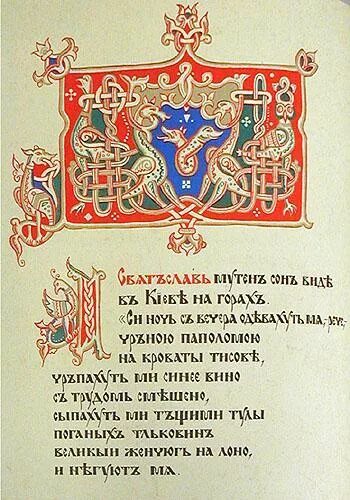 А Свѧтъславь мутенъ сон видѣ
въ Кіевѣ на горахъ.
«Си ночь съ вечера одѣвахуть мѧ,-рече,-
чръною паполомою
на кроваты тисовѣ,
чръпахуть ми синее вино
съ трудомь смѣшено,
сыпахуть ми тъщими тулы
поганыхъ тльковинъ
великыи женчюгь на лоно,
и нѣгуютъ мѧ.